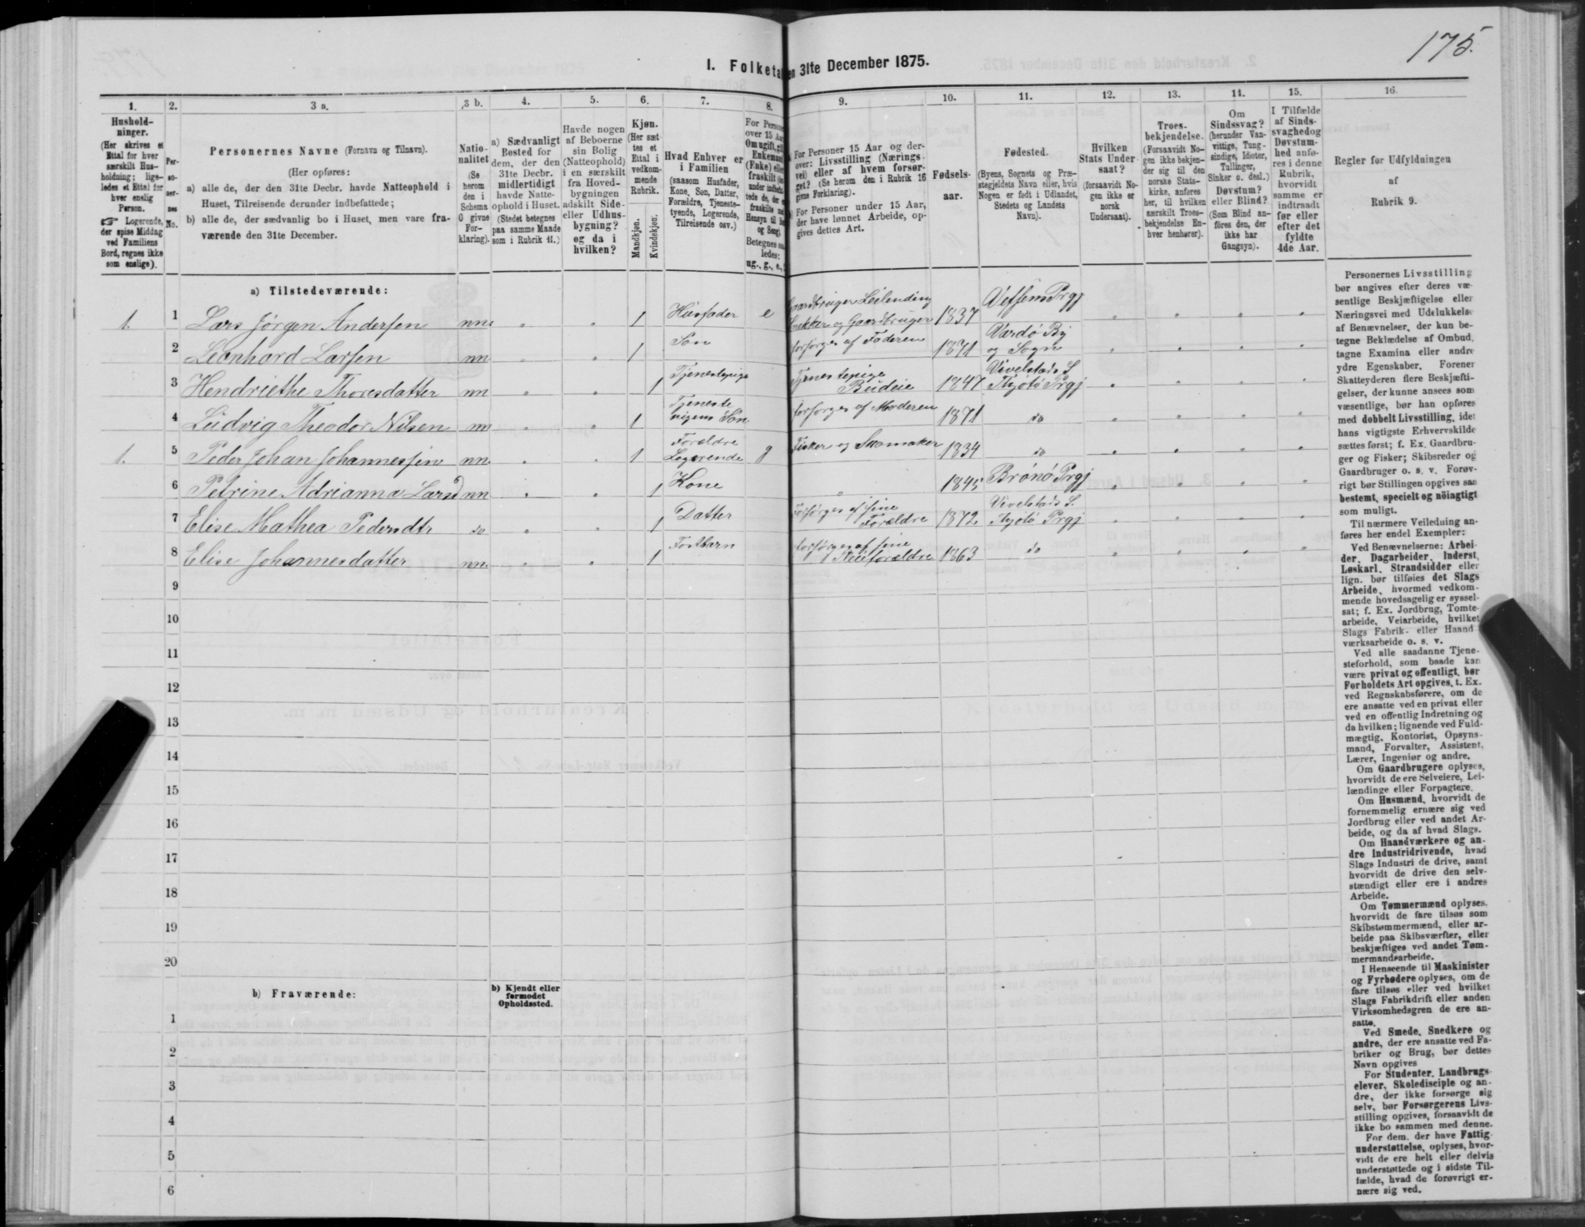 175.
I. Folketa en 31te December 1875.
1.
Hushold-
ninger.
(Her skrives et
Ettal for hver
særskilt Hus-
holdning; lige-
ledes et Ettal for
hver enslig
Person.
☞ Logerende,
der spise Middag
ved Familiens
Bord, regnes ikke
som enslige).
2.
Per-
so-
ner-
nes
No.
3 a.
Personernes Navne (Fornavn og Tilnavn).
(Her opføres:
a) alle de, der den 31te Decbr. havde Natteophold i
Huset, Tilreisende derunder indbefattede;
b) alle de, der sædvanlig bo i Huset, men vare fra-
værende den 31te December.
3 b.
Natio-
nalitet
(Se
herom
den i
Schema
G givne
For-
klaring).
4.
a) Sædvanligt
Bosted for
dem, der den
31te Decbr.
midlertidigt
havde Natte-
ophold i Huset.
(Stedet betegnes
paa samme Maade
som i Rubrik 11.)
5.
Havde nogen
af Beboerne
sin Bolig
(Natteophold)
i en særskilt
fra Hoved-
bygningen
adskilt Side-
eller Udhus-
bygning?
og da i
hvilken?
6.
Kjøn.
(Her sæt-
tes et
Ettal i
vedkom-
mende
Rubrik.
Mandkjøn.
Kvindekjøn.
7.
Hvad Enhver er
i Familien
(saasom Husfader,
Kone, Søn, Datter,
Forældre, Tjeneste-
tyende, Logerende,
Tilreisende osv.)
8.
For Person
over 15 Aar
Om ugift, gift
Enkemand
(Enke) eller
fraskilt
Betegnes saa-
ledes:
ug., g., e.,
9.
For Personer 15 Aar og der-
over: Livsstilling (Nærings-
vei) eller af hvem forsør-
get? (Se herom den i Rubrik 16
givne Forklaring).
For Personer under 15 Aar,
der have lønnet Arbeide, op-
gives dettes Art.
10.
Fødsels-
aar.
11.
Fødested.
(Byens, Sognets og Præ-
stegjeldets Navn eller, hvis
Nogen er født i Udlandet,
Stedets og Landets
Navn).
12.
Hvilken
Stats Under-
saat?
(forsaavidt No-
gen ikke er
norsk
Undersaat).
13.
Troes-
bekjendelse.
(Forsaavidt No-
gen ikke bekjen-
der sig til den
norske Stats-
kirke, anføres
her, til hvilken
særskilt Troes-
bekjendelse En-
hver henhører).
14.
Om
Sindssvag?
(herunder Van-
vittige, Tung-
sindige, Idioter,
Tullinger,
Sinker o. desl.)
Døvstum?
eller Blind?
(Som Blind an-
føres den, der
ikke har
Gangsyn).
15.
I Tilfælde
af Sinds-
svaghedog
Døvstum-
hed anfø-
res i denne
Rubrik,
hvorvidt
samme er
indtraadt
før eller
efter det
fyldte
4de Aar.
16.
Regler for Udfyldningen
af
Rubrik 9.
a) Tilstedeværende:
1. 1 Lars Jørgen Andersen nn 1 Husfader e Gaardbruger Leilending Snekker og Gaardbruger 1837 Vefsens Prgj
2 Leonhard Larsen nn 1 Søn forsørges af Faderen 1871 Vardø By og Sogn
3 Hendriethe Thoresdatter nn 1 Tjenestepige Tjenestepige Budeie 1847 Vivelstads S. Tjøtø Prgj
4 Ludvig Theodor Nilsen nn 1 Tjenestepigens Søn forsørges af Moderen 1871 do
1. 5 Peder Johan Johannessen nn 1 Forældre Logerende g Fisker og Skomaker 1834 do
6 Petrine Adrianna Larsd nn 1 Kone 1845 Brønø Prgj
7 Elise Mathea Pedersdtr do 1 Datter forsørges af sine Forældre 1872 Vivelstads S. Tjøtø Prgj
8 Elise Johannesdatter nn 1 Fostbarn forsørges af sine Pleieforældre 1863 do
9
10
11
12
13
14
15
16
17
18
19
20
b) Fraværende:
b) Kjendt eller
formodet
Opholdssted.
1
2
3
4
5
6
Personernes Livsstilling
bør angives efter deres væ-
sentlige Beskjæftigelse eller
Næringsvei med Udelukkelse
af Benævnelser, der kun be-
tegne Beklædelse af Ombud,
tagne Examina eller andre
ydre Egenskaber. Forener
Skatteyderen flere Beskjæfti-
gelser, der kunne ansees som
væsentlige, bør han opføres
med dobbelt Livsstilling, idet
hans vigtigste Erhvervskilde
sættes først; f. Ex. Gaardbru-
ger og Fisker; Skibsreder og
Gaardbruger o. s. v. Forøv-
rigt bør Stillingen opgives saa
bestemt, specielt og nøiagtigt
som muligt.
Til nærmere Veiledning an-
føres her endel Exempler:
Ved Benævnelserne: Arbei-
der, Dagarbeider, Inderst,
Løskarl, Strandsidder eller
lign. bør tilføies det Slags
Arbeide, hvormed vedkom-
mende hovedsagelig er syssel-
sat; f. Ex. Jordbrug, Tomte-
arbeide, Veiarbeide, hvilket
Slags Fabrik- eller Haand-
værksarbeide o. s. v.
Ved alle saadanne Tjene-
steforhold, som baade kan
være privat og offentligt, bør
Forholdets Art opgives, t. Ex.
ved Regnskabsførere, om de
ere ansatte ved en privat eller
ved en offentlig Indretning og
da hvilken; lignende ved Fuld-
mægtig, Kontorist, Opsyns-
mand, Forvalter, Assistent,
Lærer, Ingeniør og andre.
Om Gaardbrugere oplyses,
hvorvidt de ere Selveiere, Lei-
lændinge eller Forpagtere.
Om Husmænd, hvorvidt de
fornemmelig ernære sig ved
Jordbrug eller ved andet Ar-
beide, og da af hvad Slags.
Om Haandværkere og an-
dre Industridrivende, hvad
Slags Industri de drive, samt
hvorvidt de drive den selv-
stændigt eller ere i andres
Arbeide.
Om Tømmermænd oplyses,
hvorvidt de fare tilsøs som
Skibstømmermænd, eller ar-
beide paa Skibsværfter, eller
beskjæftiges ved andet Tøm-
mermandsarbeide.
I Henseende til Maskinister
og Fyrbødere oplyses, om de
fare tilsøs eller ved hvilket
Slags Fabrikdrift eller anden
Virksomhedsgren de ere an-
satte.
Ved Smede, Snedkere og
andre, der ere ansatte ved Fa-
briker og Brug, bør dettes
Navn opgives
For Studenter, Landbrugs-
elever, Skoledisciple og an-
dre, der ikke forsørge sig
selv, bør Forsørgerens Livs-
stilling opgives, forsaavidt de
ikke bo sammen med denne.
For dem, der have Fattig-
understøttelse, oplyses, hvor-
vidt de ere helt eller delvis
understøttede og i sidste Til-
fælde, hvad de forøvrigt er-
nære sig ved.